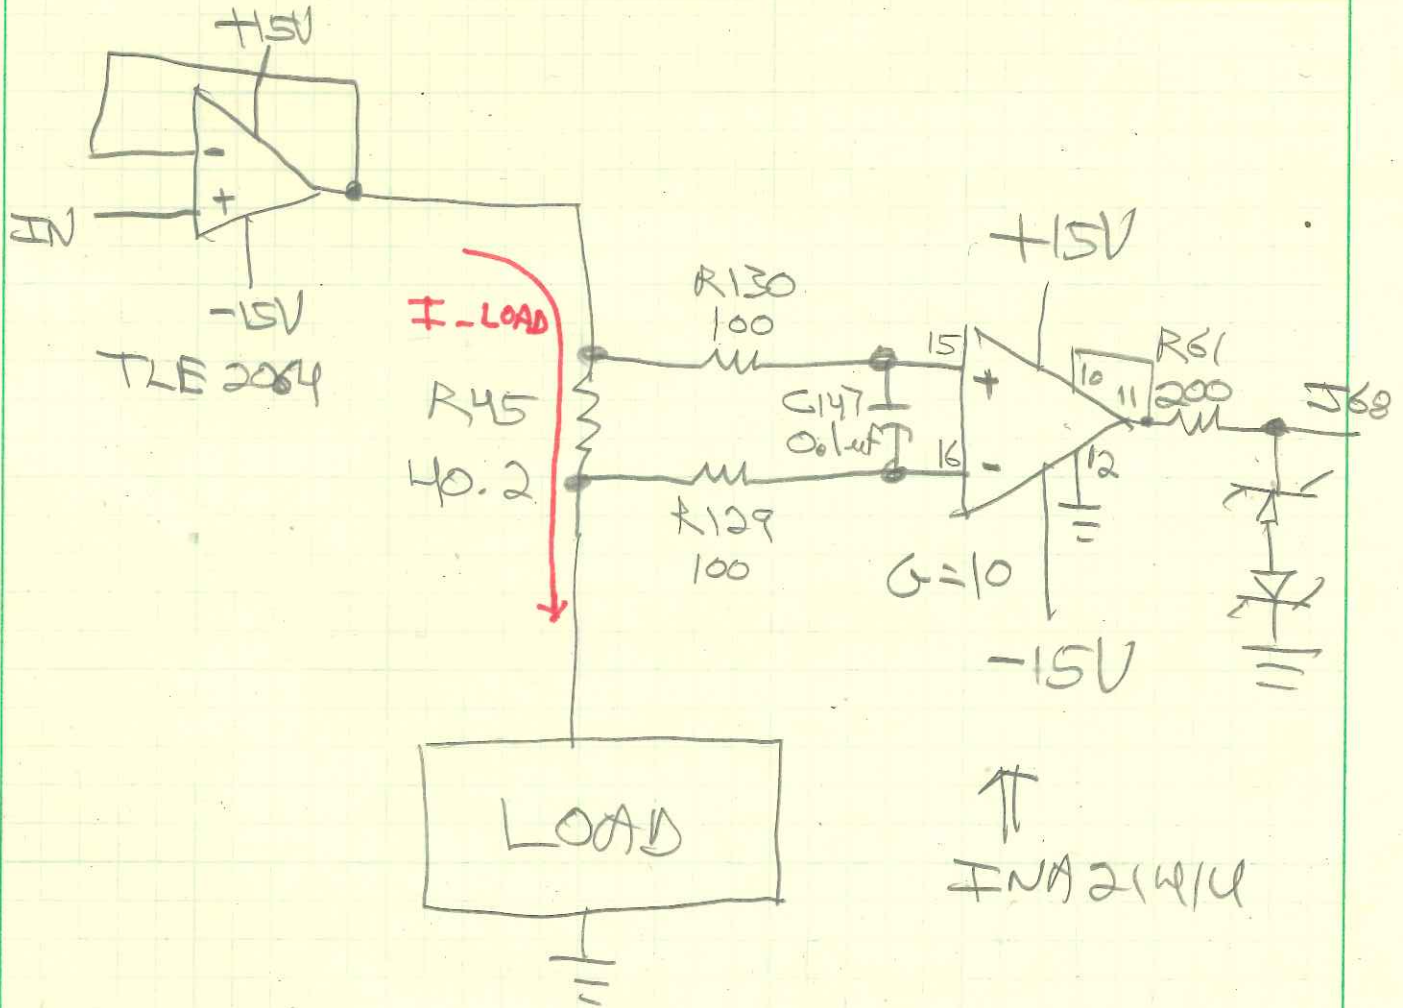 +15V
-
+
IN
-15V
TLE 2064
I_LOAD
R45
40.2
R130
100
C147
0.1uF
R129
100
+15V
15
+
16
-
10
11
12
R61
200
J68
G=10
-15V
LOAD
INA2141U